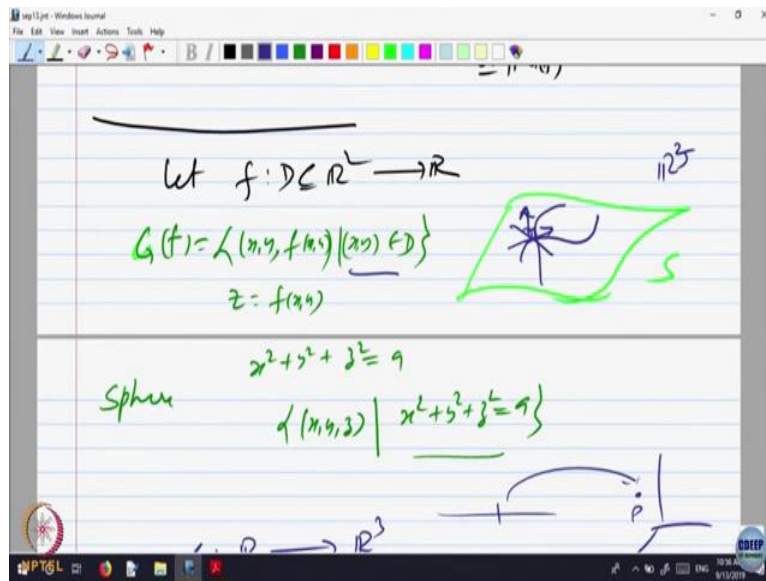 sep13.jnt - Windows Journal
File Edit View Insert Actions Tools Help
B I
Let f : D ⊆ ℝ² → ℝ
ℝ³
G(f) = {(x, y, f(x,y)) | (x,y) ∈ D}
S
z = f(x,y)
x² + y² + z² = 9
Sphere
{(x, y, z) | x² + y² + z² = 9}
P
ℝ → ℝ³
NPTEL
CDEEP
ENG
9/13/2019